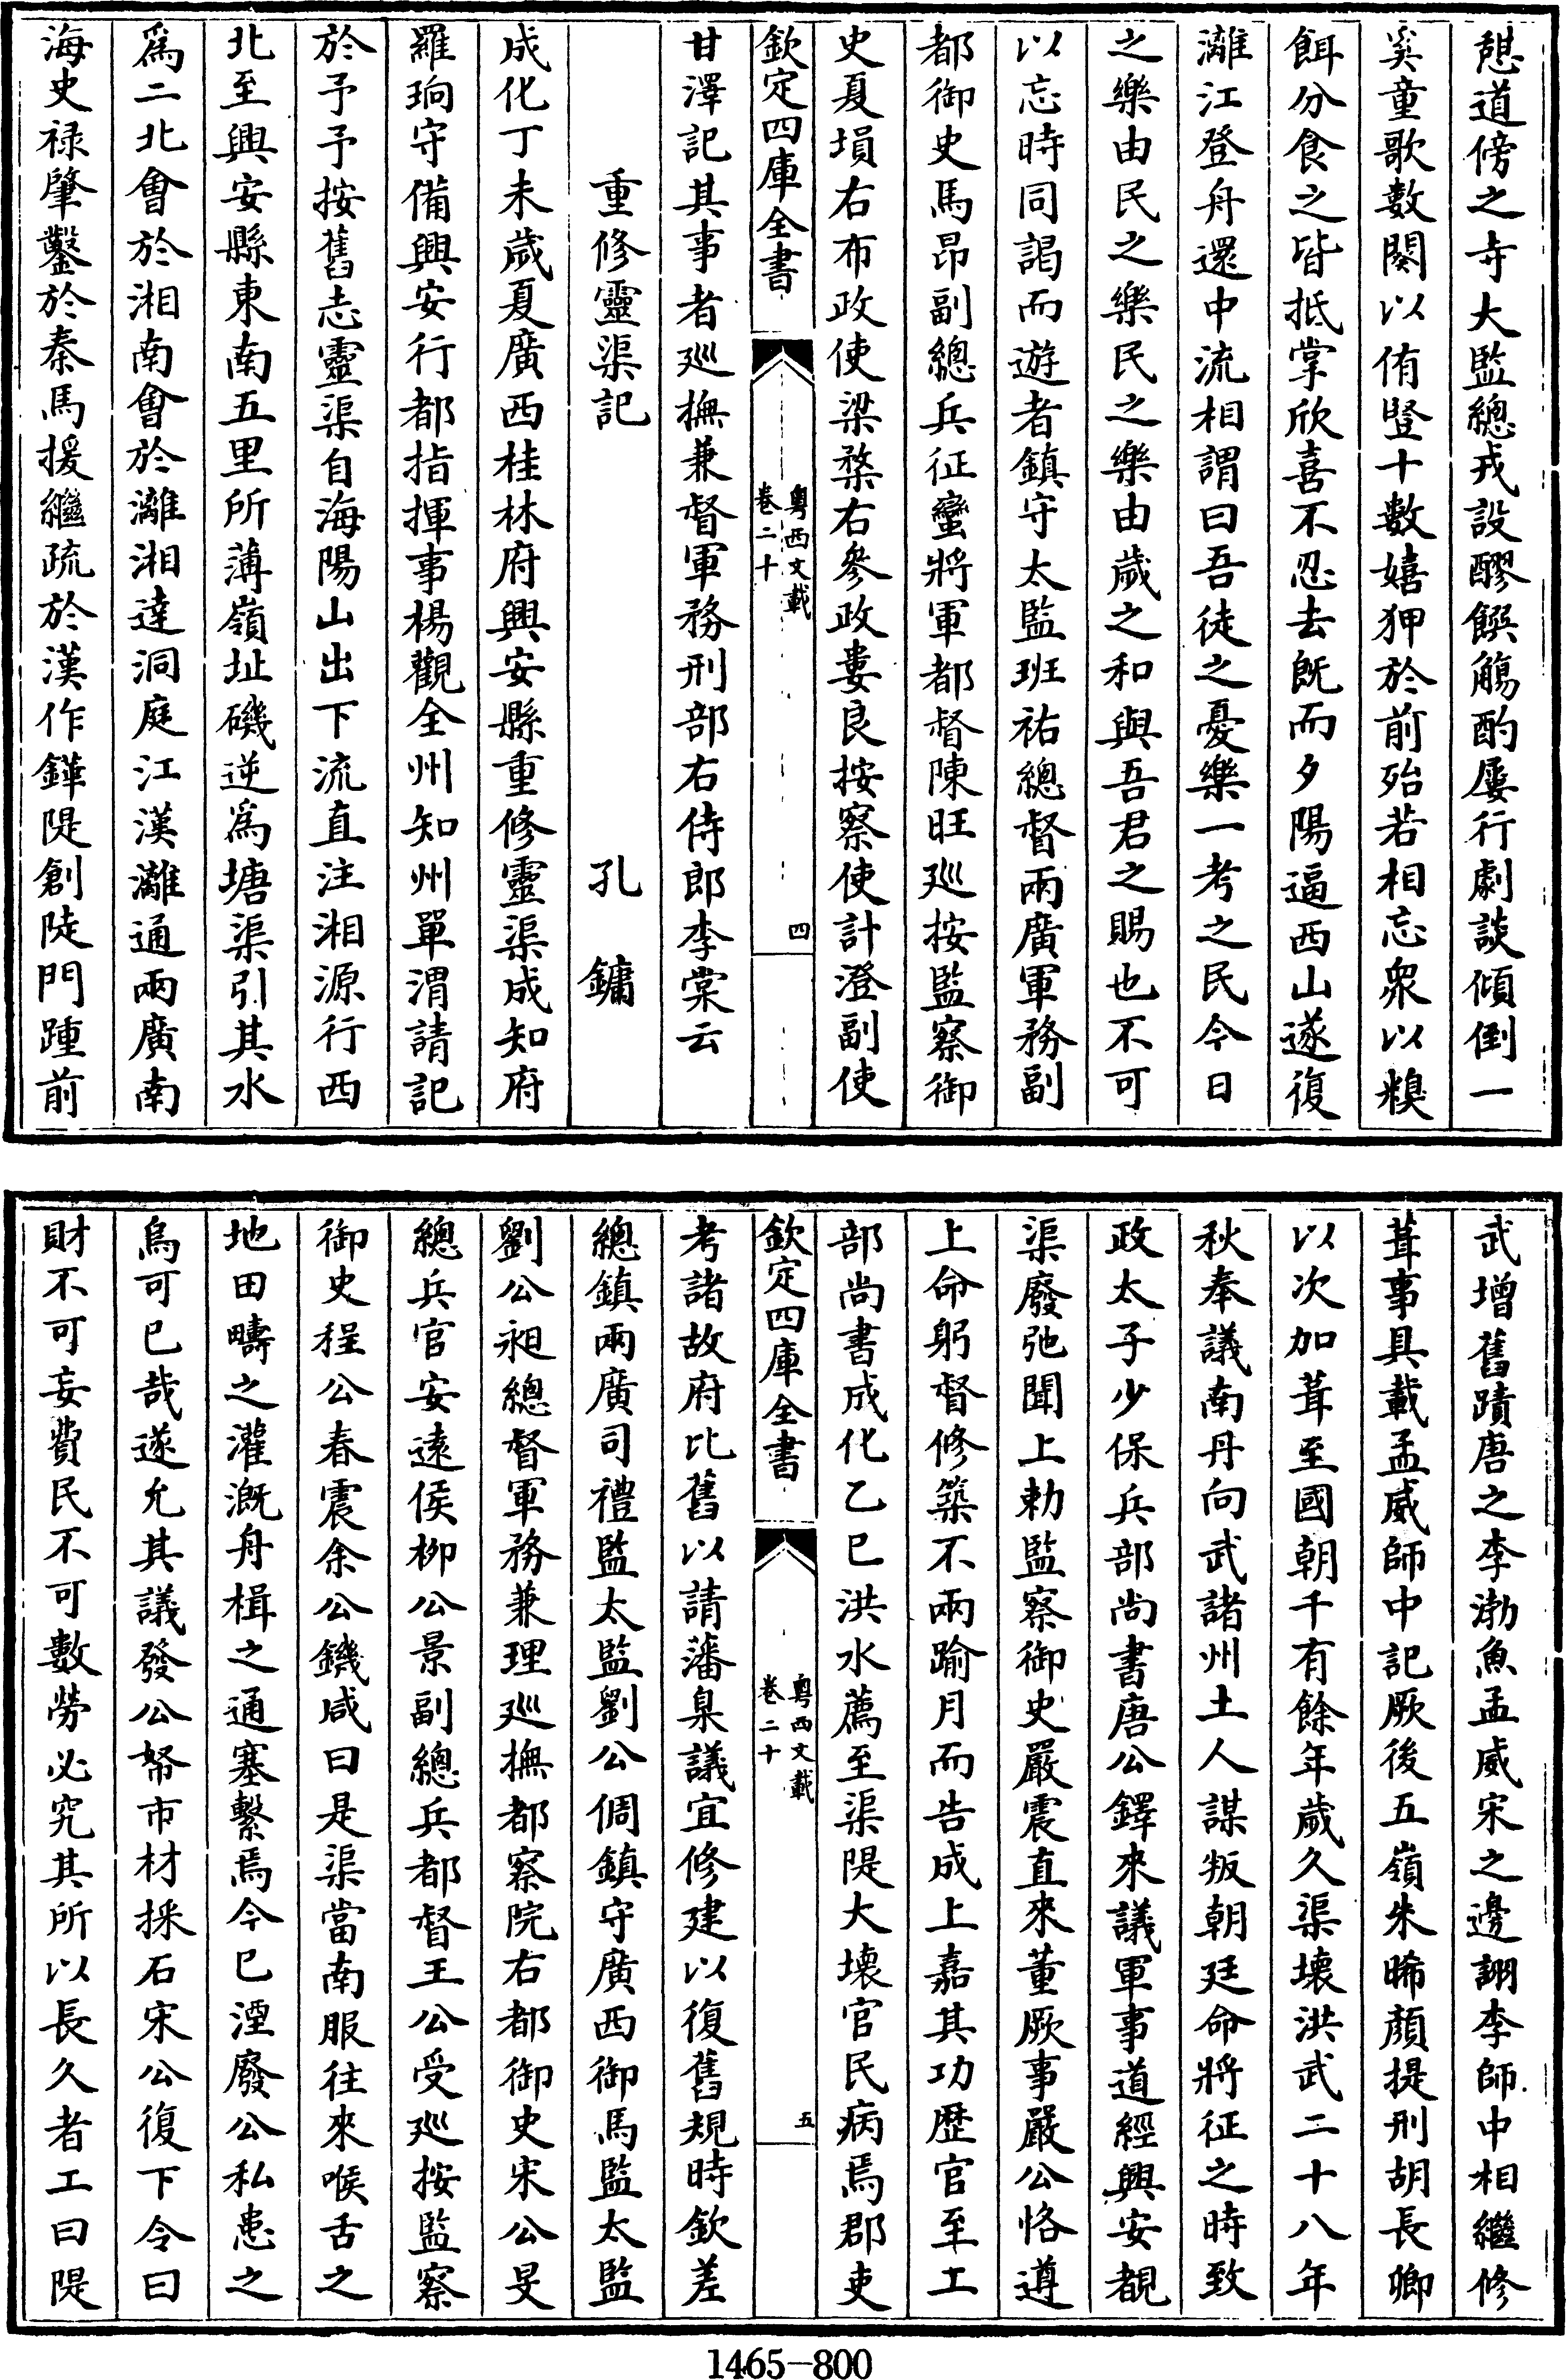 憇道傍之寺大監總戎設醪饌觴酌屢行劇談傾倒一
奚童歌數闋以侑竪十數嬉狎於前殆若相忘衆以糗
餌分食之皆抵掌欣喜不忍去既而夕陽逼西山遂復
灕江登舟還中流相謂曰吾徒之憂樂一考之民今日
之樂由民之樂樂民之樂由歲之和與吾君之賜也不可
以忘時同謁而遊者鎮守太監班祐總督兩廣軍務副
都御史馬昂副總兵征蠻將軍都督陳旺巡按監察御
史夏塤右布政使梁楘右參政婁良按察使計澄副使
欽定四庫全書
粤西文載
卷二十
四
甘澤記其事者巡撫兼督軍務刑部右侍郎李棠云
重修靈渠記
孔鏞
成化丁未歲夏廣西桂林府興安縣重修靈渠成知府
羅珦守備興安行都指揮事楊觀全州知州單渭請記
於予予按舊志靈渠自海陽山出下流直注湘源行西
北至興安縣東南五里所薄嶺址磯逆爲塘渠引其水
爲二北會於湘南會於灕湘達洞庭江漢灕通兩廣南
海史禄肇鑿於秦馬援繼疏於漢作鏵隄創陡門踵前
武增舊蹟唐之李渤魚孟威宋之邊詡李師中相繼修
葺事具載孟威師中記厥後五嶺朱晞顔提刑胡長卿
以次加葺至國朝千有餘年歲久渠壞洪武二十八年
秋奉議南丹向武諸州土人謀叛朝廷命將征之時致
政太子少保兵部尚書唐公鐸來議軍事道經興安覩
渠廢弛聞上勅監察御史嚴震直來董厥事嚴公恪遵
上命躬督修築不兩踰月而告成上嘉其功歴官至工
部尚書成化乙巳洪水薦至渠隄大壞官民病焉郡吏
欽定四庫全書
粤西文載
卷二十
五
考諸故府比舊以請藩臬議宜修建以復舊規時欽差
總鎮兩廣司禮監太監劉公倜鎮守廣西御馬監太監
劉公昶總督軍務兼理巡撫都察院右都御史宋公旻
總兵官安遠侯柳公景副總兵都督王公受巡按監察
御史程公春震余公鐖咸曰是渠當南服往來喉舌之
地田疇之灌漑舟楫之通塞繫焉今已湮廢公私患之
烏可已哉遂允其議發公帑市材採石宋公復下令曰
財不可妄費民不可數勞必究其所以長久者工曰隄
1465-800